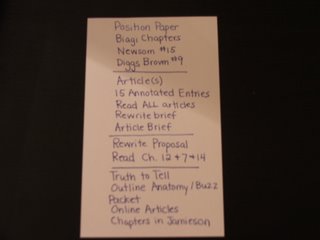 Position Paper
Biagi Chapters
Newsom #15
Diggs Brown #9
Article(s)
15 Annotated Entries
Read ALL articles
Rewrite brief
Article Brief
Rewrite Proposal
Read Ch. 12 + 7 + 14
Truth to Tell
Outline Anatomy/Buzz
Packet
Online Articles
Chapters in Jamieson